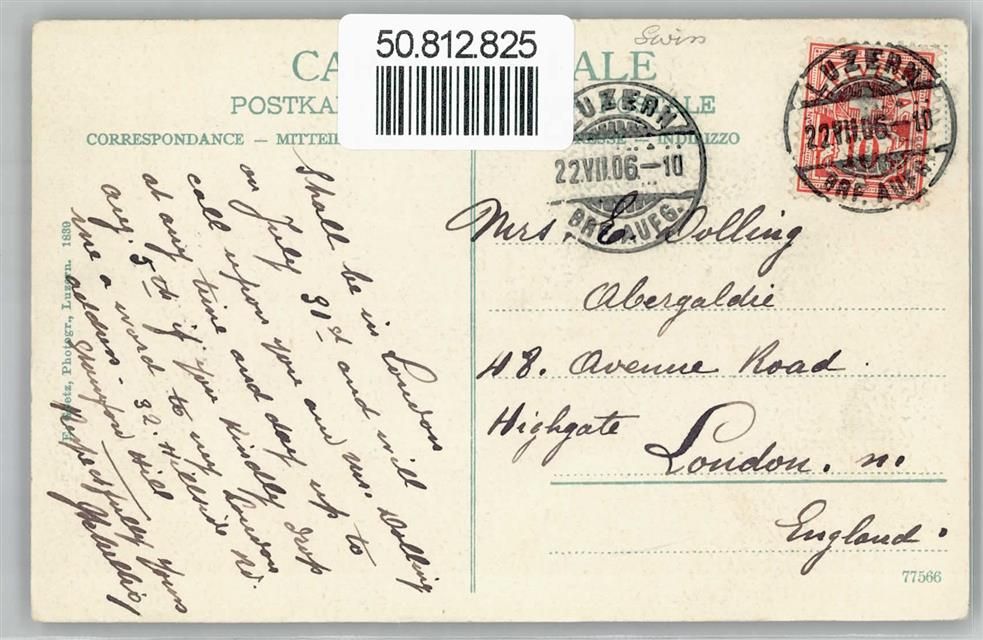 50.812.825
Swiss
CA ALE
POSTKA LE
CORRESPONDANCE — MITTEI INDIRIZZO
LUZERN
22.VII.06.–10
BRF. AUFG.
LUZERN
22.VII.06.–10
BRF. AUFG.
Shall be in London
on July 31st and will
call upon you and Mrs. Dolling
any time and day up to
Aug. 5th if you kindly drop
me a word to my London
address. 32. Hillside Rd.
Hill
Respectfully Yours
Mrs E. Dolling
Abergaldie
48. Avenue Road.
Highgate
London. N.
England.
77566
E. Goetz, Photogr., Luzern. 1839